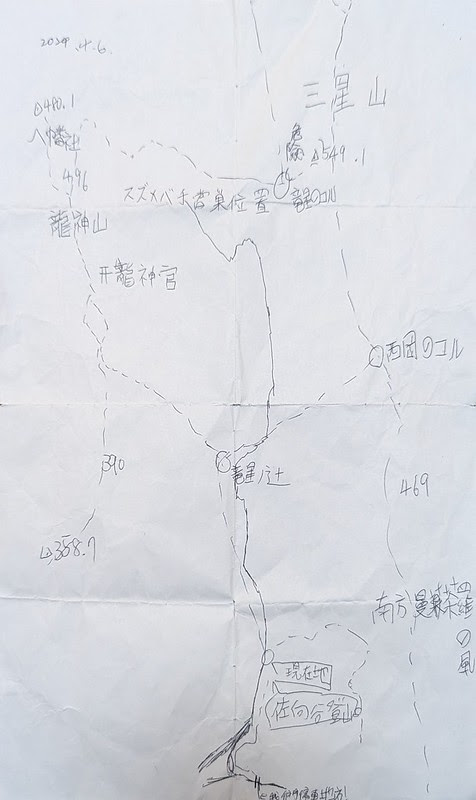 2024.4.6.
三星山
△480.1
八幡社
危険
△549.1
496
スズメバチ営巣位置
龍星のコル
龍神山
龍神宮
西岡のコル
390
龍星辻
469
△358.7
南方曼荼羅
の風
現在地
佐向谷登山口